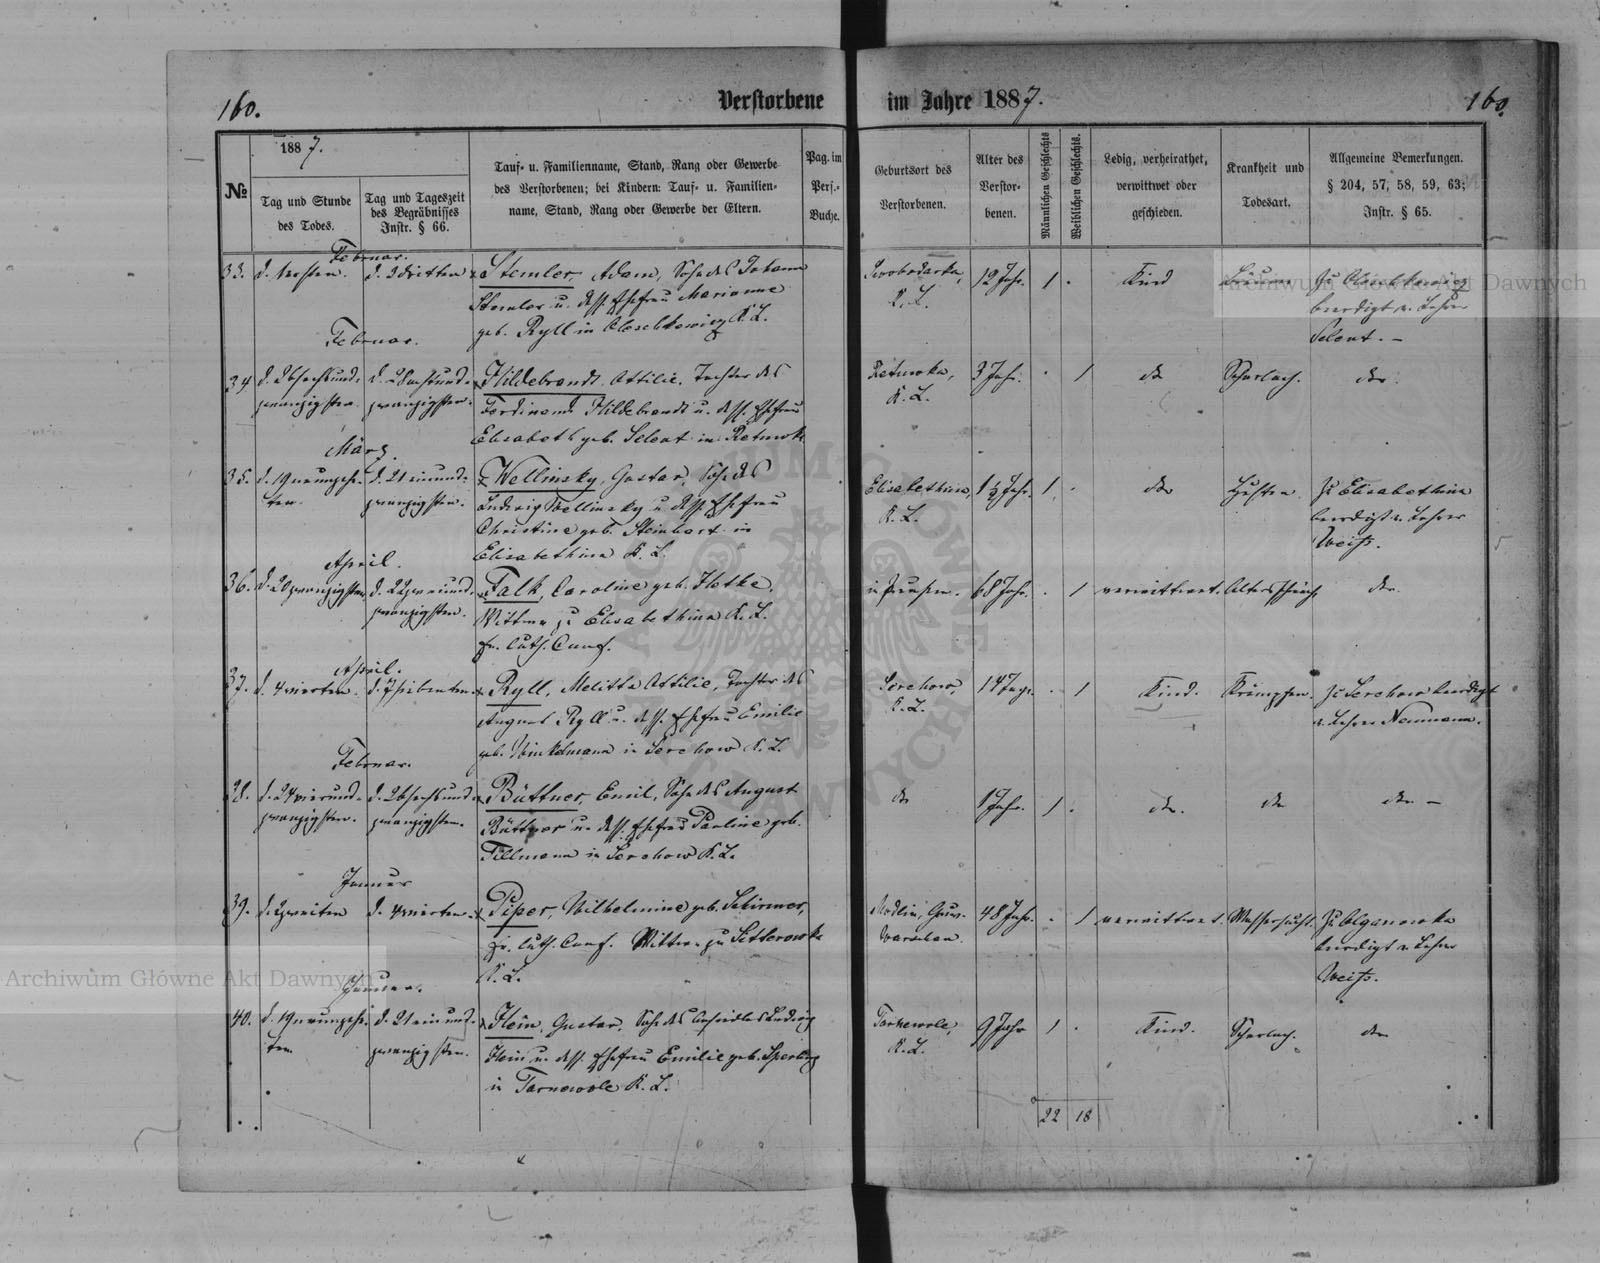 160.
Verstorbene im Jahre 1887.
160.
№
1887.
Tag und Stunde
des Todes.
Tag und Tageszeit
des Begräbnisses
Instr. § 66.
Tauf- u. Familienname, Stand, Rang oder Gewerbe
des Verstorbenen; bei Kindern: Tauf- u. Familien-
name, Stand, Rang oder Gewerbe der Eltern.
Pag. im
Pers.-
Buche.
Geburtsort des
Verstorbenen.
Alter des
Verstor-
benen.
Männlichen Geschlechts
Weiblichen Geschlechts.
Ledig, verheirathet,
verwittwet oder
geschieden.
Krankheit und
Todesart.
Allgemeine Bemerkungen.
§ 204, 57, 58, 59, 63;
Instr. § 65.
Februar.
33. d. 1ersten.
d. 3dritten
Stemler, Adam, Sohn des Johann
Stemler u. dess. Ehefrau Marianne
geb. Ryll in K. L.
K. L.
12 Jahr.
1
Kind
Zu
beerdigt v. Lehrer
Selent. –
Februar.
34 d. 26sechsund-
zwanzigsten
zwanzigsten.
Hildebrandt, Ottilie, Tochter des
Ferdinand Hildebrandt u. dess. Ehefrau
Elisabeth geb. Selent in
K. L.
3 Jahr.
1
do
Scharlach.
do.
März.
35. d. 19neunzehn-
ten
d. 21einund-
zwanzigsten.
Wellinsky, Gustav, Sohn des
Ludwig Wellinsky u. dess. Ehefrau
Christine geb. Steinbart in
Elisabethina K. L.
Elisabethina,
K. L.
1½ Jahr.
1
do
Husten.
Zu Elisabethina
beerdigt v. Lehrer
Weiss.
April.
36. d. 20zwanzigsten
d. 22zweiund-
zwanzigsten.
Falk, Caroline geb.
Wittwe zu Elisabethina K. L.
ev. luth. Conf.
in Preußen.
68 Jahr.
1
verwittwet.
Altersschwäche
do.
April.
37. d. 4vierten.
d. 7siebenten.
Ryll, Melitta Ottilie, Tochter des
August Ryll u. dess. Ehefrau Emilie
geb. Winkelmann in Serchow K. L.
Serchow,
K. L.
14 Tage.
1
Kind.
Krämpfen.
Zu Serchow beerdigt
v. Lehrer Neumann.
Februar.
38. d. 24vierund-
zwanzigsten.
d. 26sechsund-
zwanzigsten.
Büttner, Emil, Sohn des August
Büttner u. dess. Ehefrau Pauline geb.
Tillmann in Serchow K. L.
do
1 Jahr.
1
do.
do
do. –
Januar
39. d. 2zweiten
d. 4vierten.
Piper, Wilhelmine geb. Schirmer,
ev. luth. Conf. Wittwe zu
K. L.
Modlin, Gouv.
Warschau.
48 Jahr.
1
verwittwet.
Wassersucht.
Zu Olganowka
beerdigt v. Lehrer
Weiss.
Januar.
40. d. 19neunzehn-
ten
d. 21einund-
zwanzigsten.
Hein, Gustav, Sohn des Ludwig
Hein u. dess. Ehefrau Emilie geb. Sperling
in Tarnowole K. L.
K. L.
9 Jahr
1
Kind.
Scharlach.
do
22
18
Archiwum Główne Akt Dawnych
Archiwum Główne Akt Dawnych